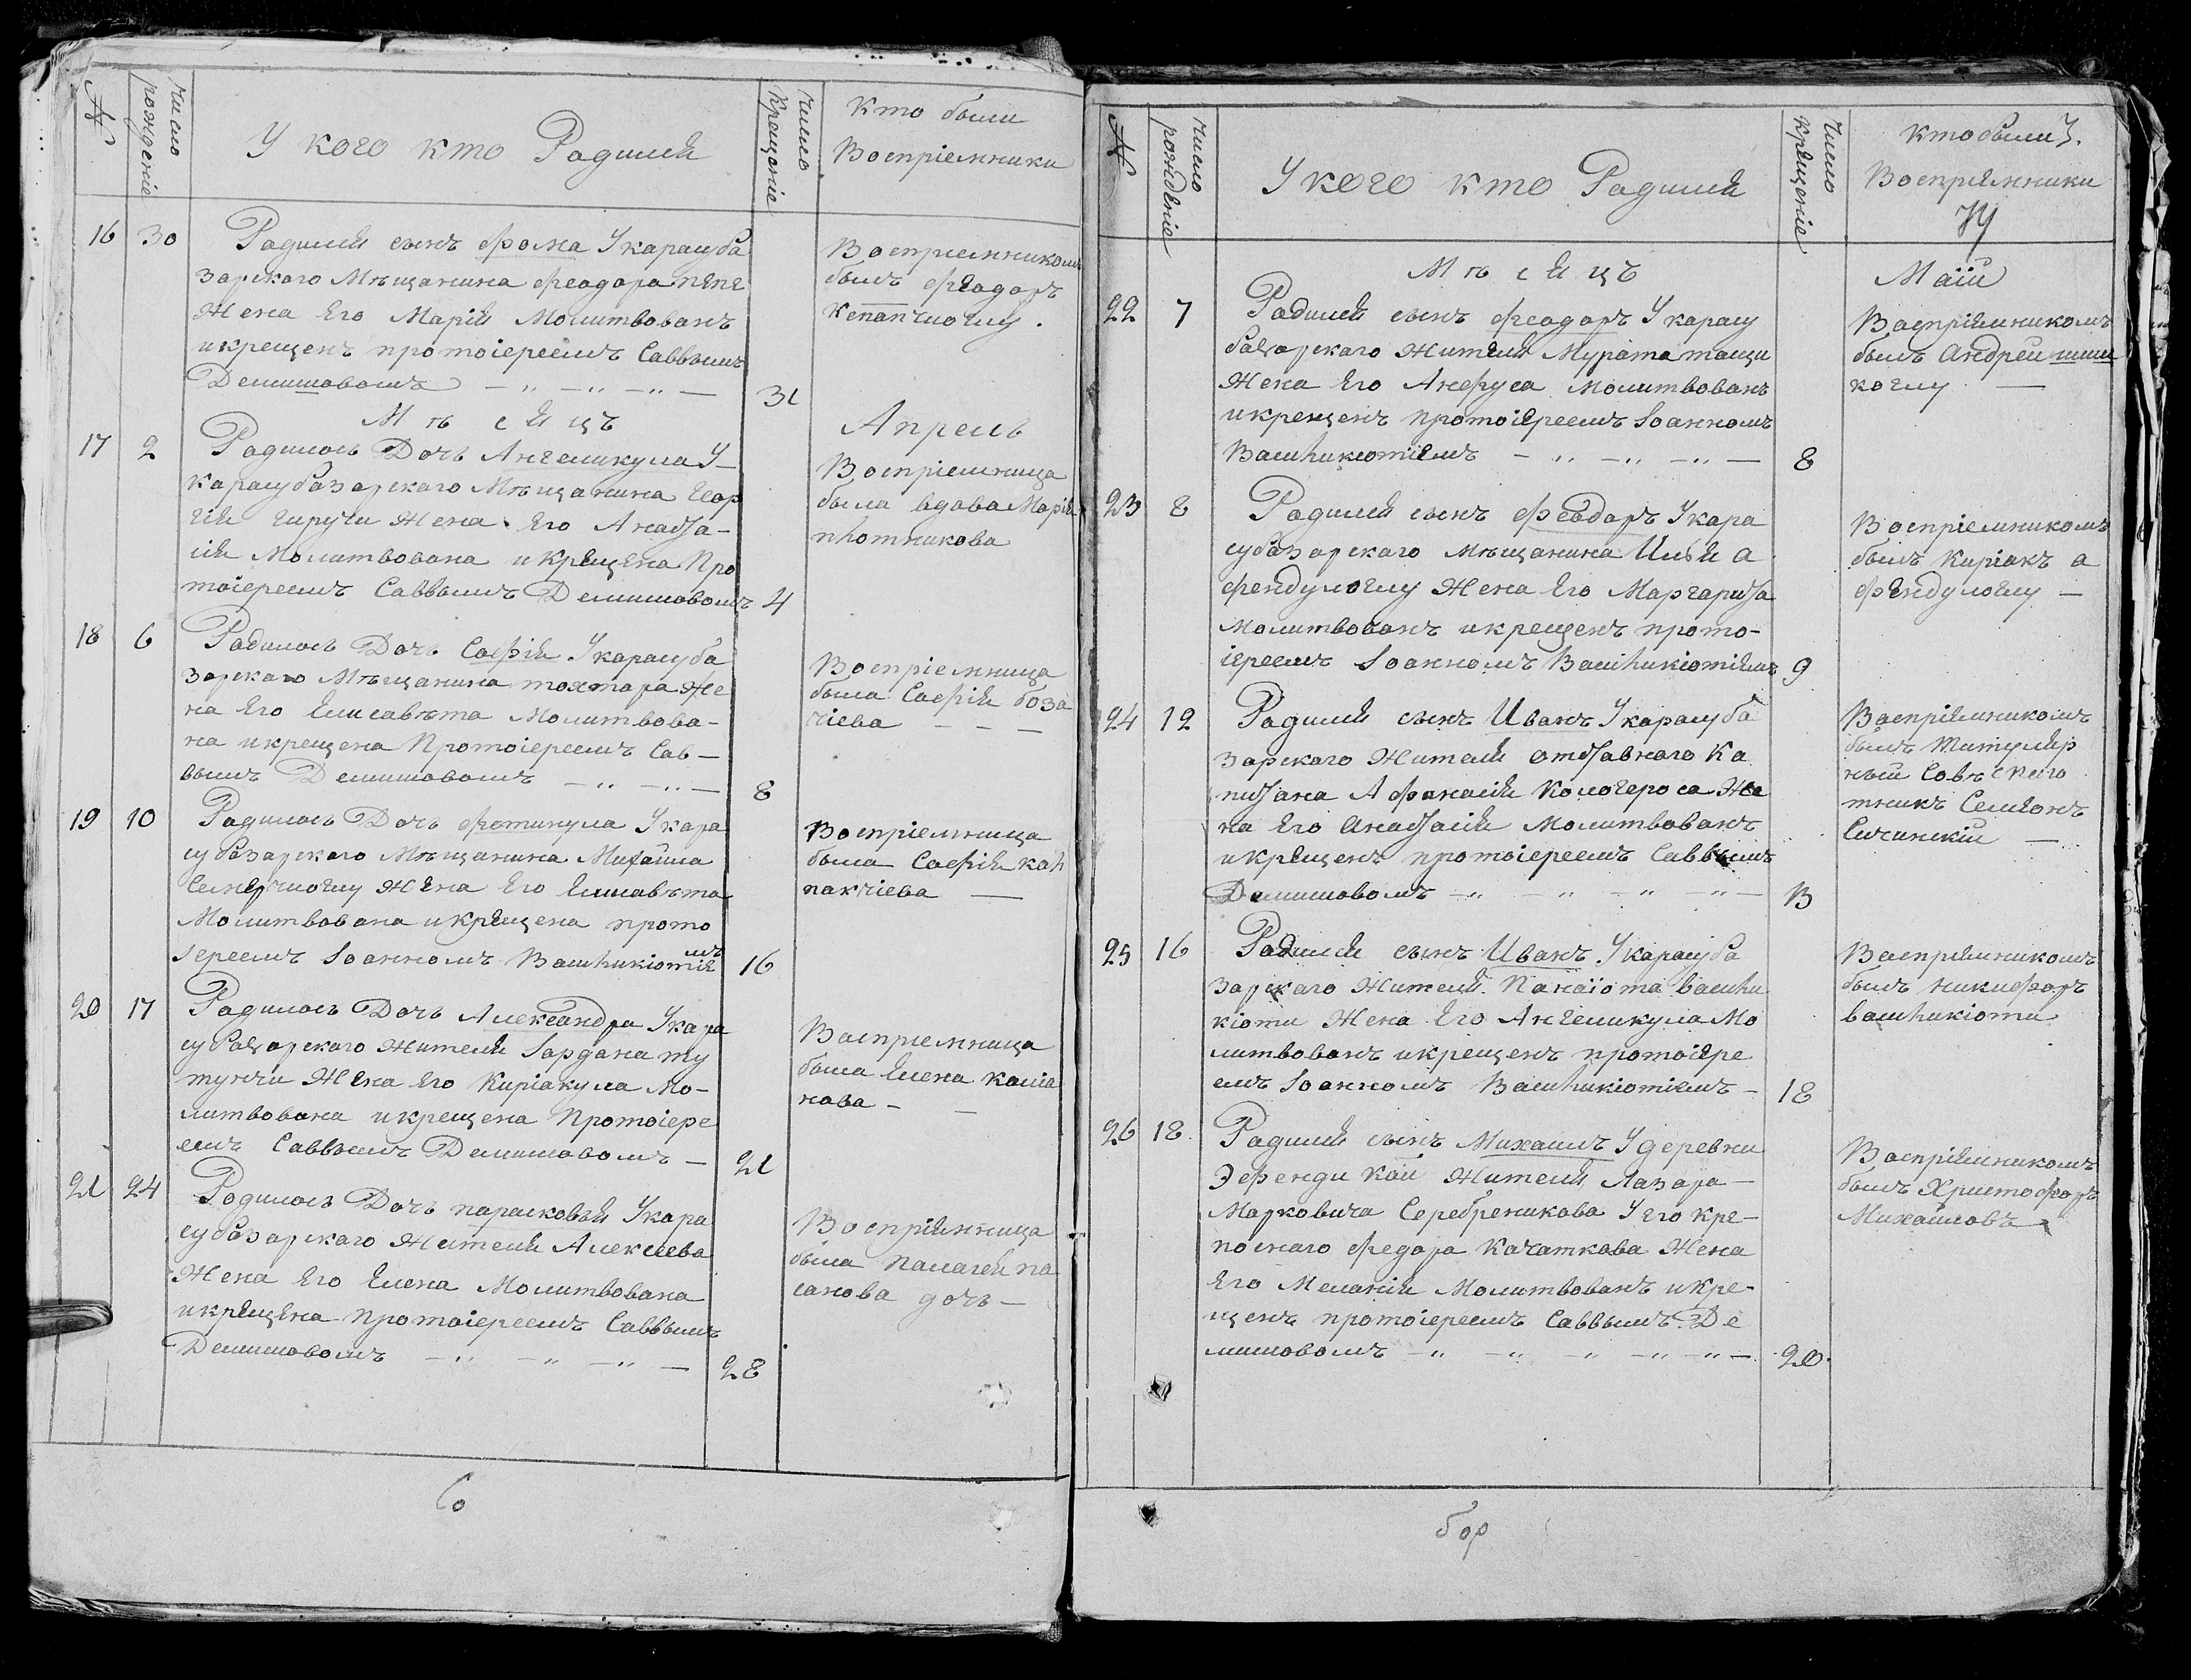 №
число рожденіе
У кого кто Радился
число Крещеніе
Кто были
Воспріемники
16 30
Радился сынъ фома У карасуба
зарскаго Мѣщанина феодора пепе
Жена Его Марія Молитвованъ
и крещенъ протоіереемъ Саввымъ
Демишовомъ 31
Воспріемникомъ
былъ феодоръ
Кепапчиоглу.
Мѣсяцъ Апрель
17 2
Радилась Дочь Ангеликула У
карасубазарскаго Мѣщанина Геор
гія Жена Его Анаста-
сія Молитвована и Крещена Про
тоіереемъ Саввымъ Демишовомъ 4
Воспріемница
была вдова Марія
плотникова
18 6
Радилась Дочь Софія У карасуба
зарскаго Мѣщанина тохтара Же
на Его Елисавѣта Молитвова-
на и крещена Протоіереемъ Сав-
вымъ Демишовомъ 8
Воспріемница
была Софія боза
чіева
19 10
Радилась Дочь фотикула У кара
субазарскаго Мѣщанина Михаила
Жена Его Елисавѣта
Молитвована и крещена прото
іереемъ Іоанномъ Вашликіотіемъ 16
Воспріемница
была Софія кал
пакчіева
20 17
Радилась Дочь Александра У кара
субазарскаго Жителя Іордана ту
тунчи Жена Его Киріакула Мо-
литвована и крещена Протоіере
емъ Саввымъ Демишовомъ 21
Воспріемница
была Елена
нова
21 24
Радилась Дочь парасковья У кара
субазарскаго Жителя Алексеева
Жена Его Елена Молитвована
и крещена протоіереемъ Саввымъ
Демишовомъ 28
Воспріемница
была Палагея па
санова дочь
Со
№
Число рожденіе
У кого кто Радился
Число Крещеніе
Кто были 3.
Воспріемники
74
Мѣсяцъ Маій
22 7
Радился сынъ феодоръ У карасу
базарскаго Жителя Мурата тащи
Жена Его Анфуса Молитвованъ
и крещенъ протоіереемъ Іоанномъ
Вашликіотіемъ 8
Воспріемникомъ
былъ Андрей
коглу
23 8
Радился сынъ феодоръ У кара
субазарскаго Мѣщанина Ильи а
фендулоглу Жена Его Маргарита
Молитвованъ и крещенъ прото-
іереемъ Іоанномъ Вашликіотіемъ 9
Воспріемникомъ
былъ Киріакъ а
фендулоглу
24 12
Радился сынъ Иванъ У карасуба
зарскаго Жителя отставного Ка
питана Афанасія Кологероса Же
на Его Анастасія Молитвованъ
и крещенъ протоіереемъ Саввымъ
Демишовомъ 13
Воспріемникомъ
былъ Титуляр
ный Совѣ
тникъ Семіонъ
Сичинскій
25 16
Радился сынъ Иванъ У карасуба
зарскаго Жителя Панаіота вашли
кіоти Жена Его Ангеликула Мо
литвованъ и крещенъ протоіере
емъ Іоанномъ Вашликіотіемъ 18
Воспріемникомъ
былъ никифоръ
вашликіоти
26 18
Радился сынъ Михаилъ У деревни
Эфенди Кои Жителя Лазара
Марковича Серебреникова У его кре-
поснаго федора Качаткова Жена
Его Меланія Молитвованъ и кре-
щенъ протоіереемъ Саввымъ Де
мишовомъ 20
Воспріемникомъ
былъ Христофоръ
Михайловъ
бор